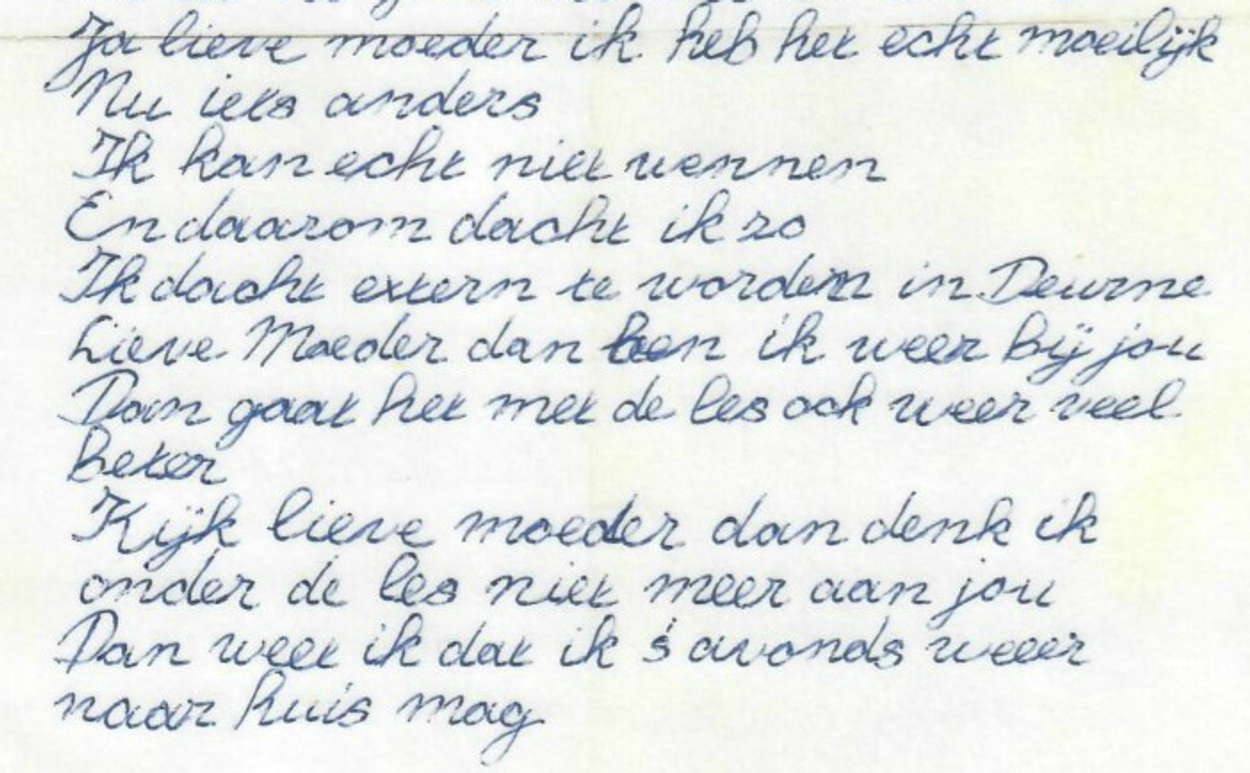 Ja lieve moeder ik heb het echt moeilijk
Nu iets anders
Ik kan echt niet wennen
En daarom dacht ik zo
Ik dacht extern te worden in Deurne
Lieve Moeder dan ben ik weer bij jou
Dan gaat het met de les ook weer veel
beter
Kijk lieve moeder dan denk ik
onder de les niet meer aan jou
Dan weet ik dat ik 's avonds weeer
naar huis mag